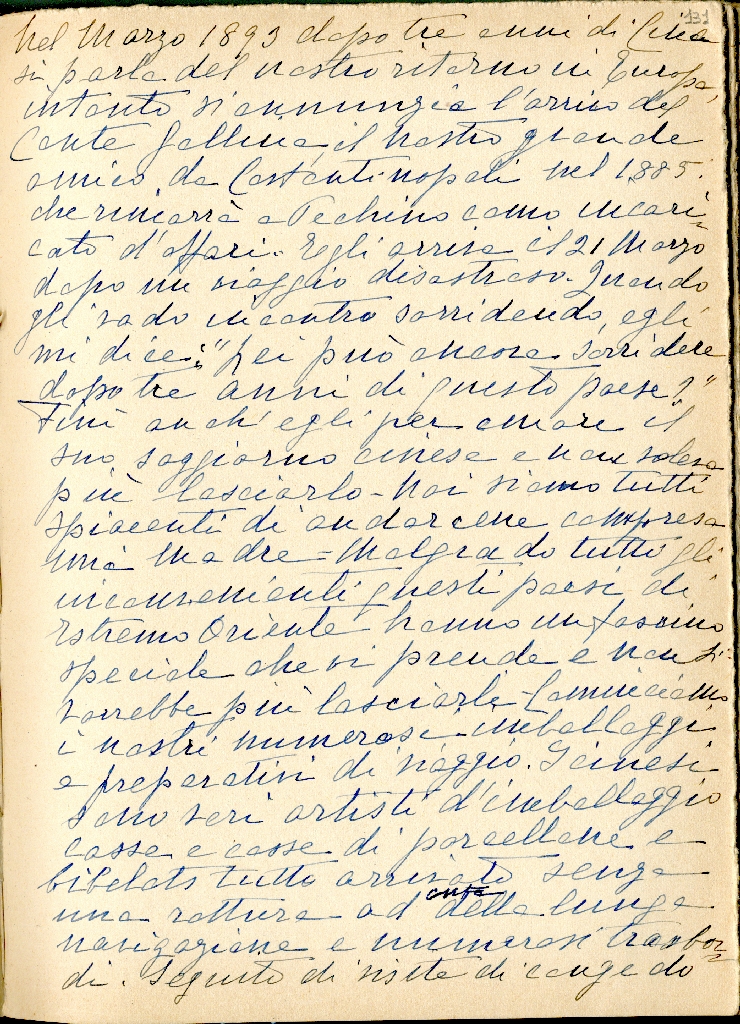 131
Nel Marzo 1893 dopo tre anni di Cina
si parla del nostro ritorno in Europa,
intanto si annunzia l'arrivo del
Conte Gallina il nostro grande
amico da Costantinopoli nel 1885.
che rimarrà a Pechino come incari=
cato d'affari. Egli arriva il 21 Marzo
dopo un viaggio disastroso. Quando
gli vado incontro sorridendo, egli
mi dice: "Lei può ancora sorridere
dopo tre anni di questo paese?"
Finì anch'egli per amare il
suo soggiorno cinese e non voleva
più lasciarlo - Noi siamo tutti
spiacenti di andarcene compresa
mia Madre = Malgrado tutti gli
inconvenienti questi paesi di
Estremo Oriente hanno un fascino
speciale che vi prende e non si
vorrebbe più lasciarli - Cominciamo
i nostri numerosi imballaggi
e preparativi di viaggio. I cinesi
sono veri artisti d'imballaggio
casse e casse di porcellane e
bibelots tutto arrivato senza
una rottura ad onta della lunga
navigazione e numerosi trasbor=
di. Seguito di visite di congedo